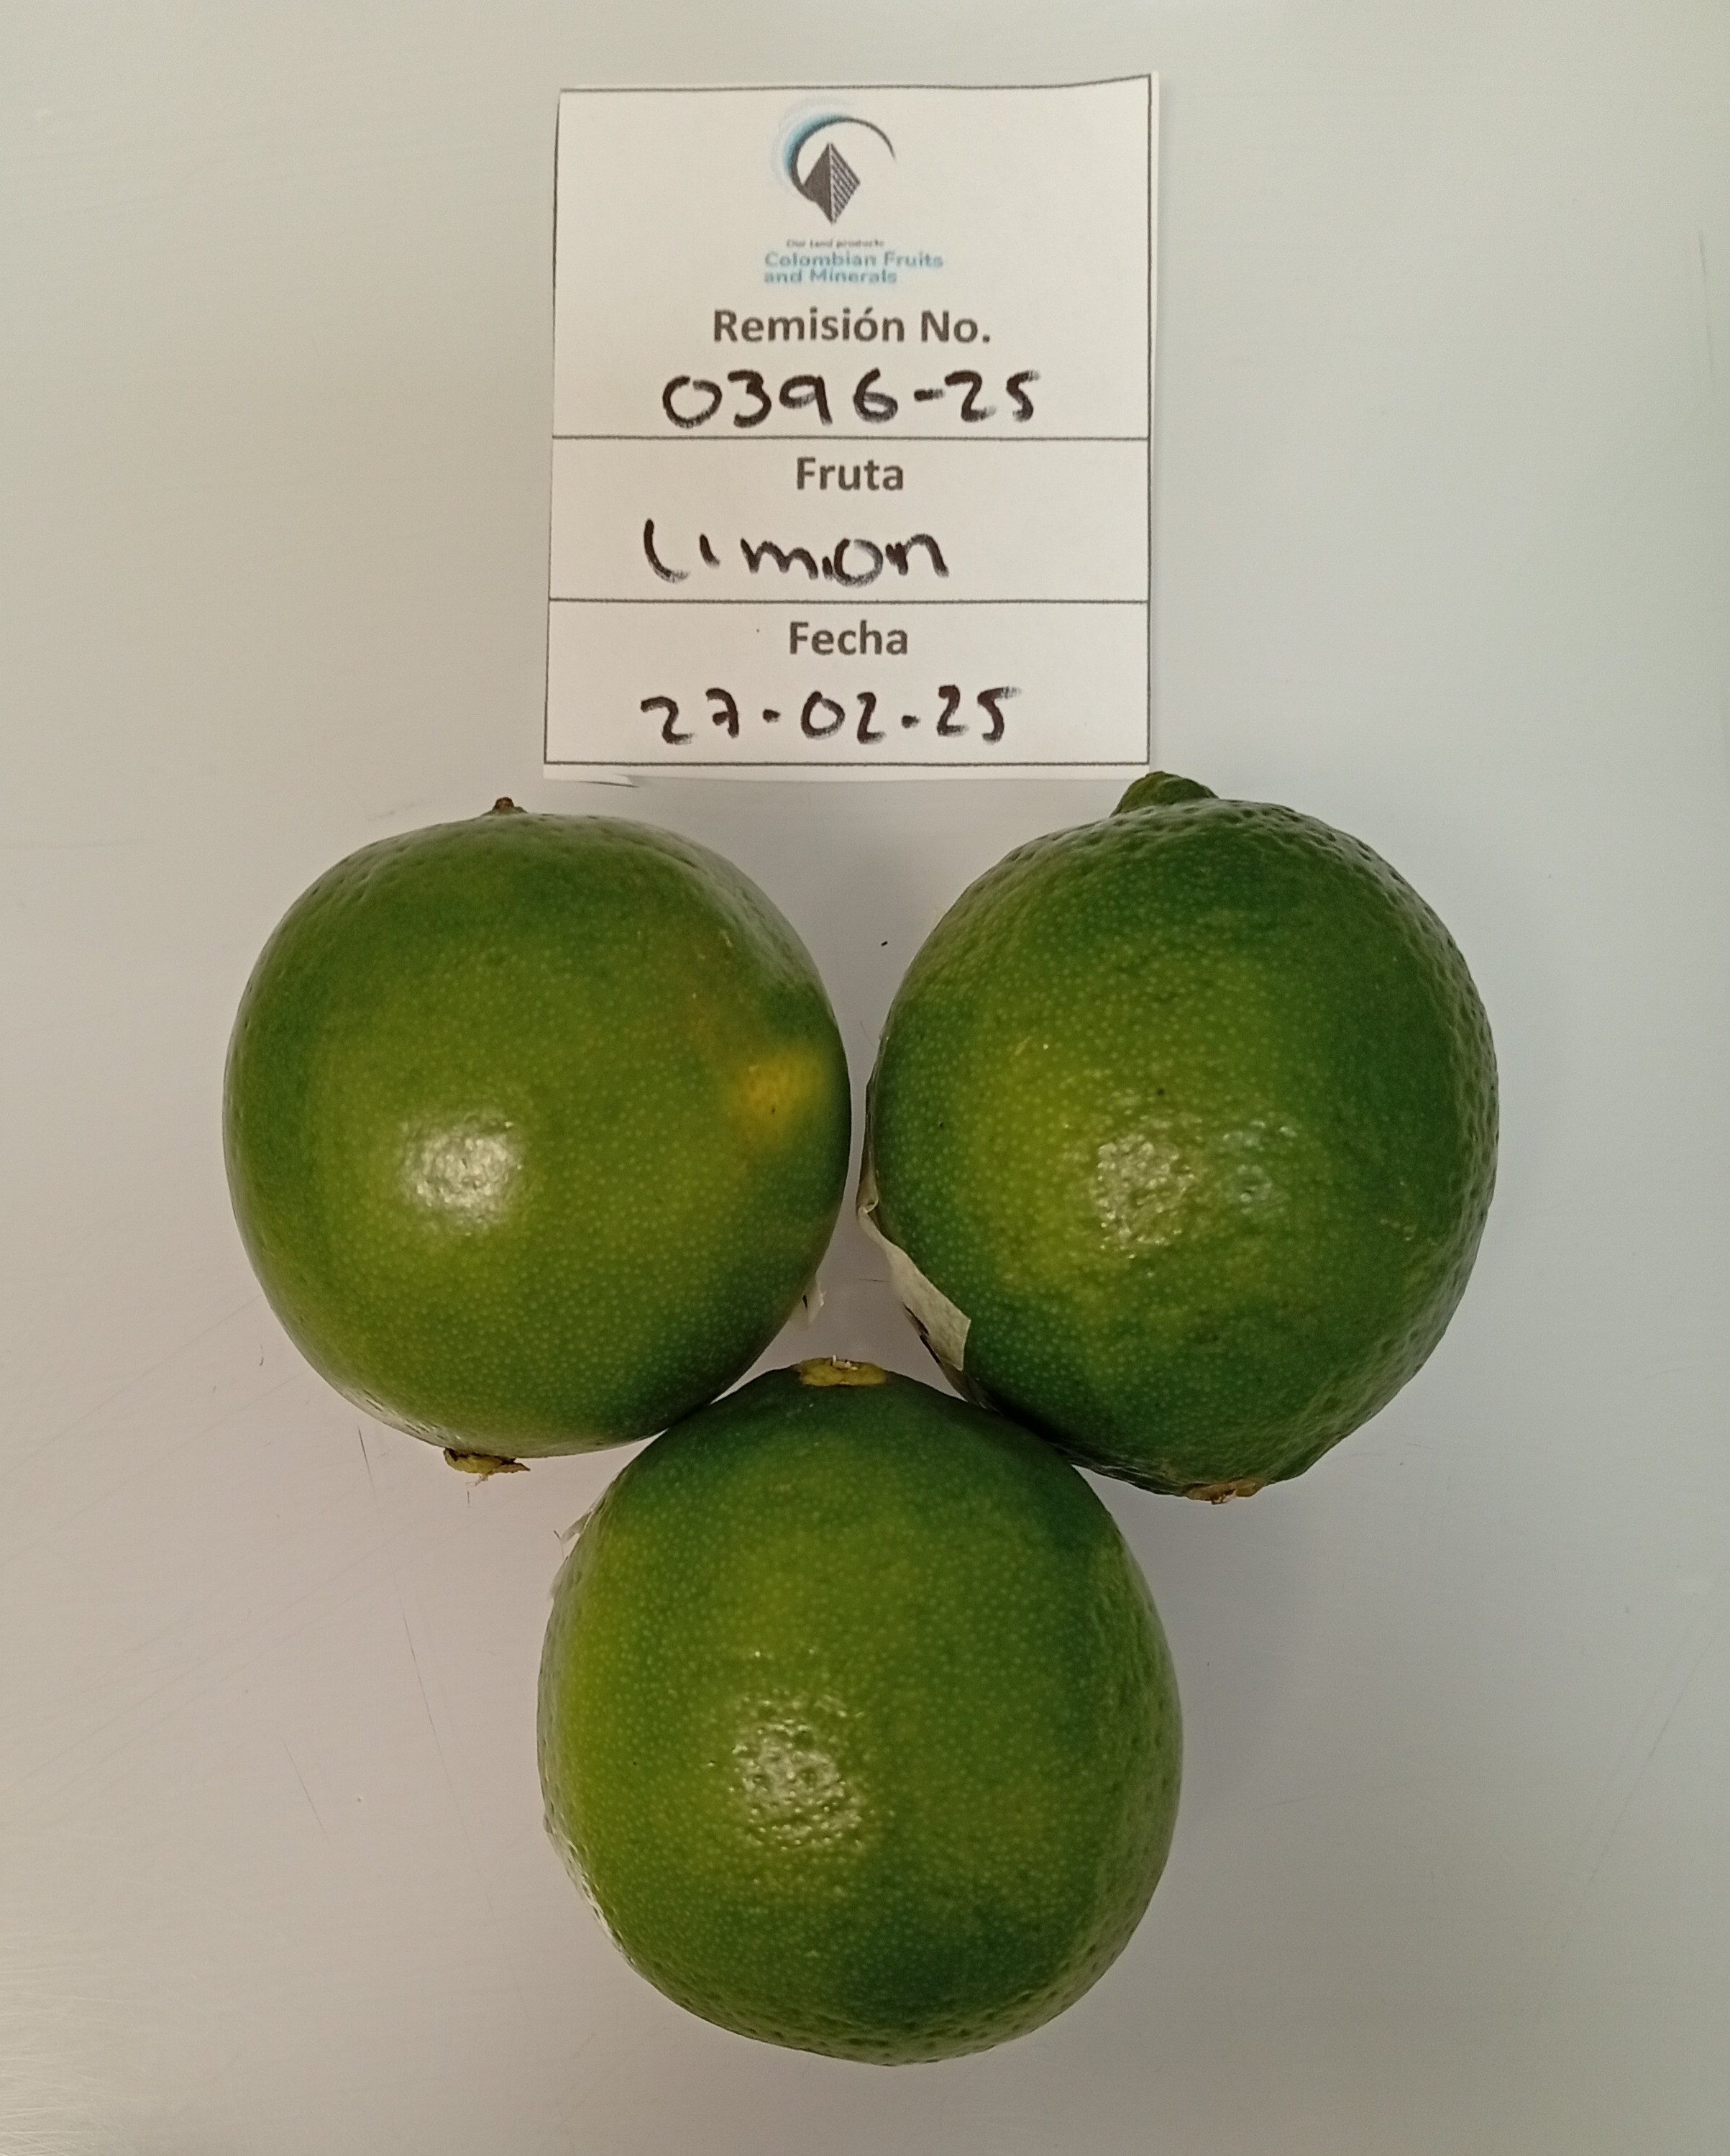 Our land products
Colombian Fruits
and Minerals
Remisión No.
0396-25
Fruta
Limon
Fecha
27-02-25